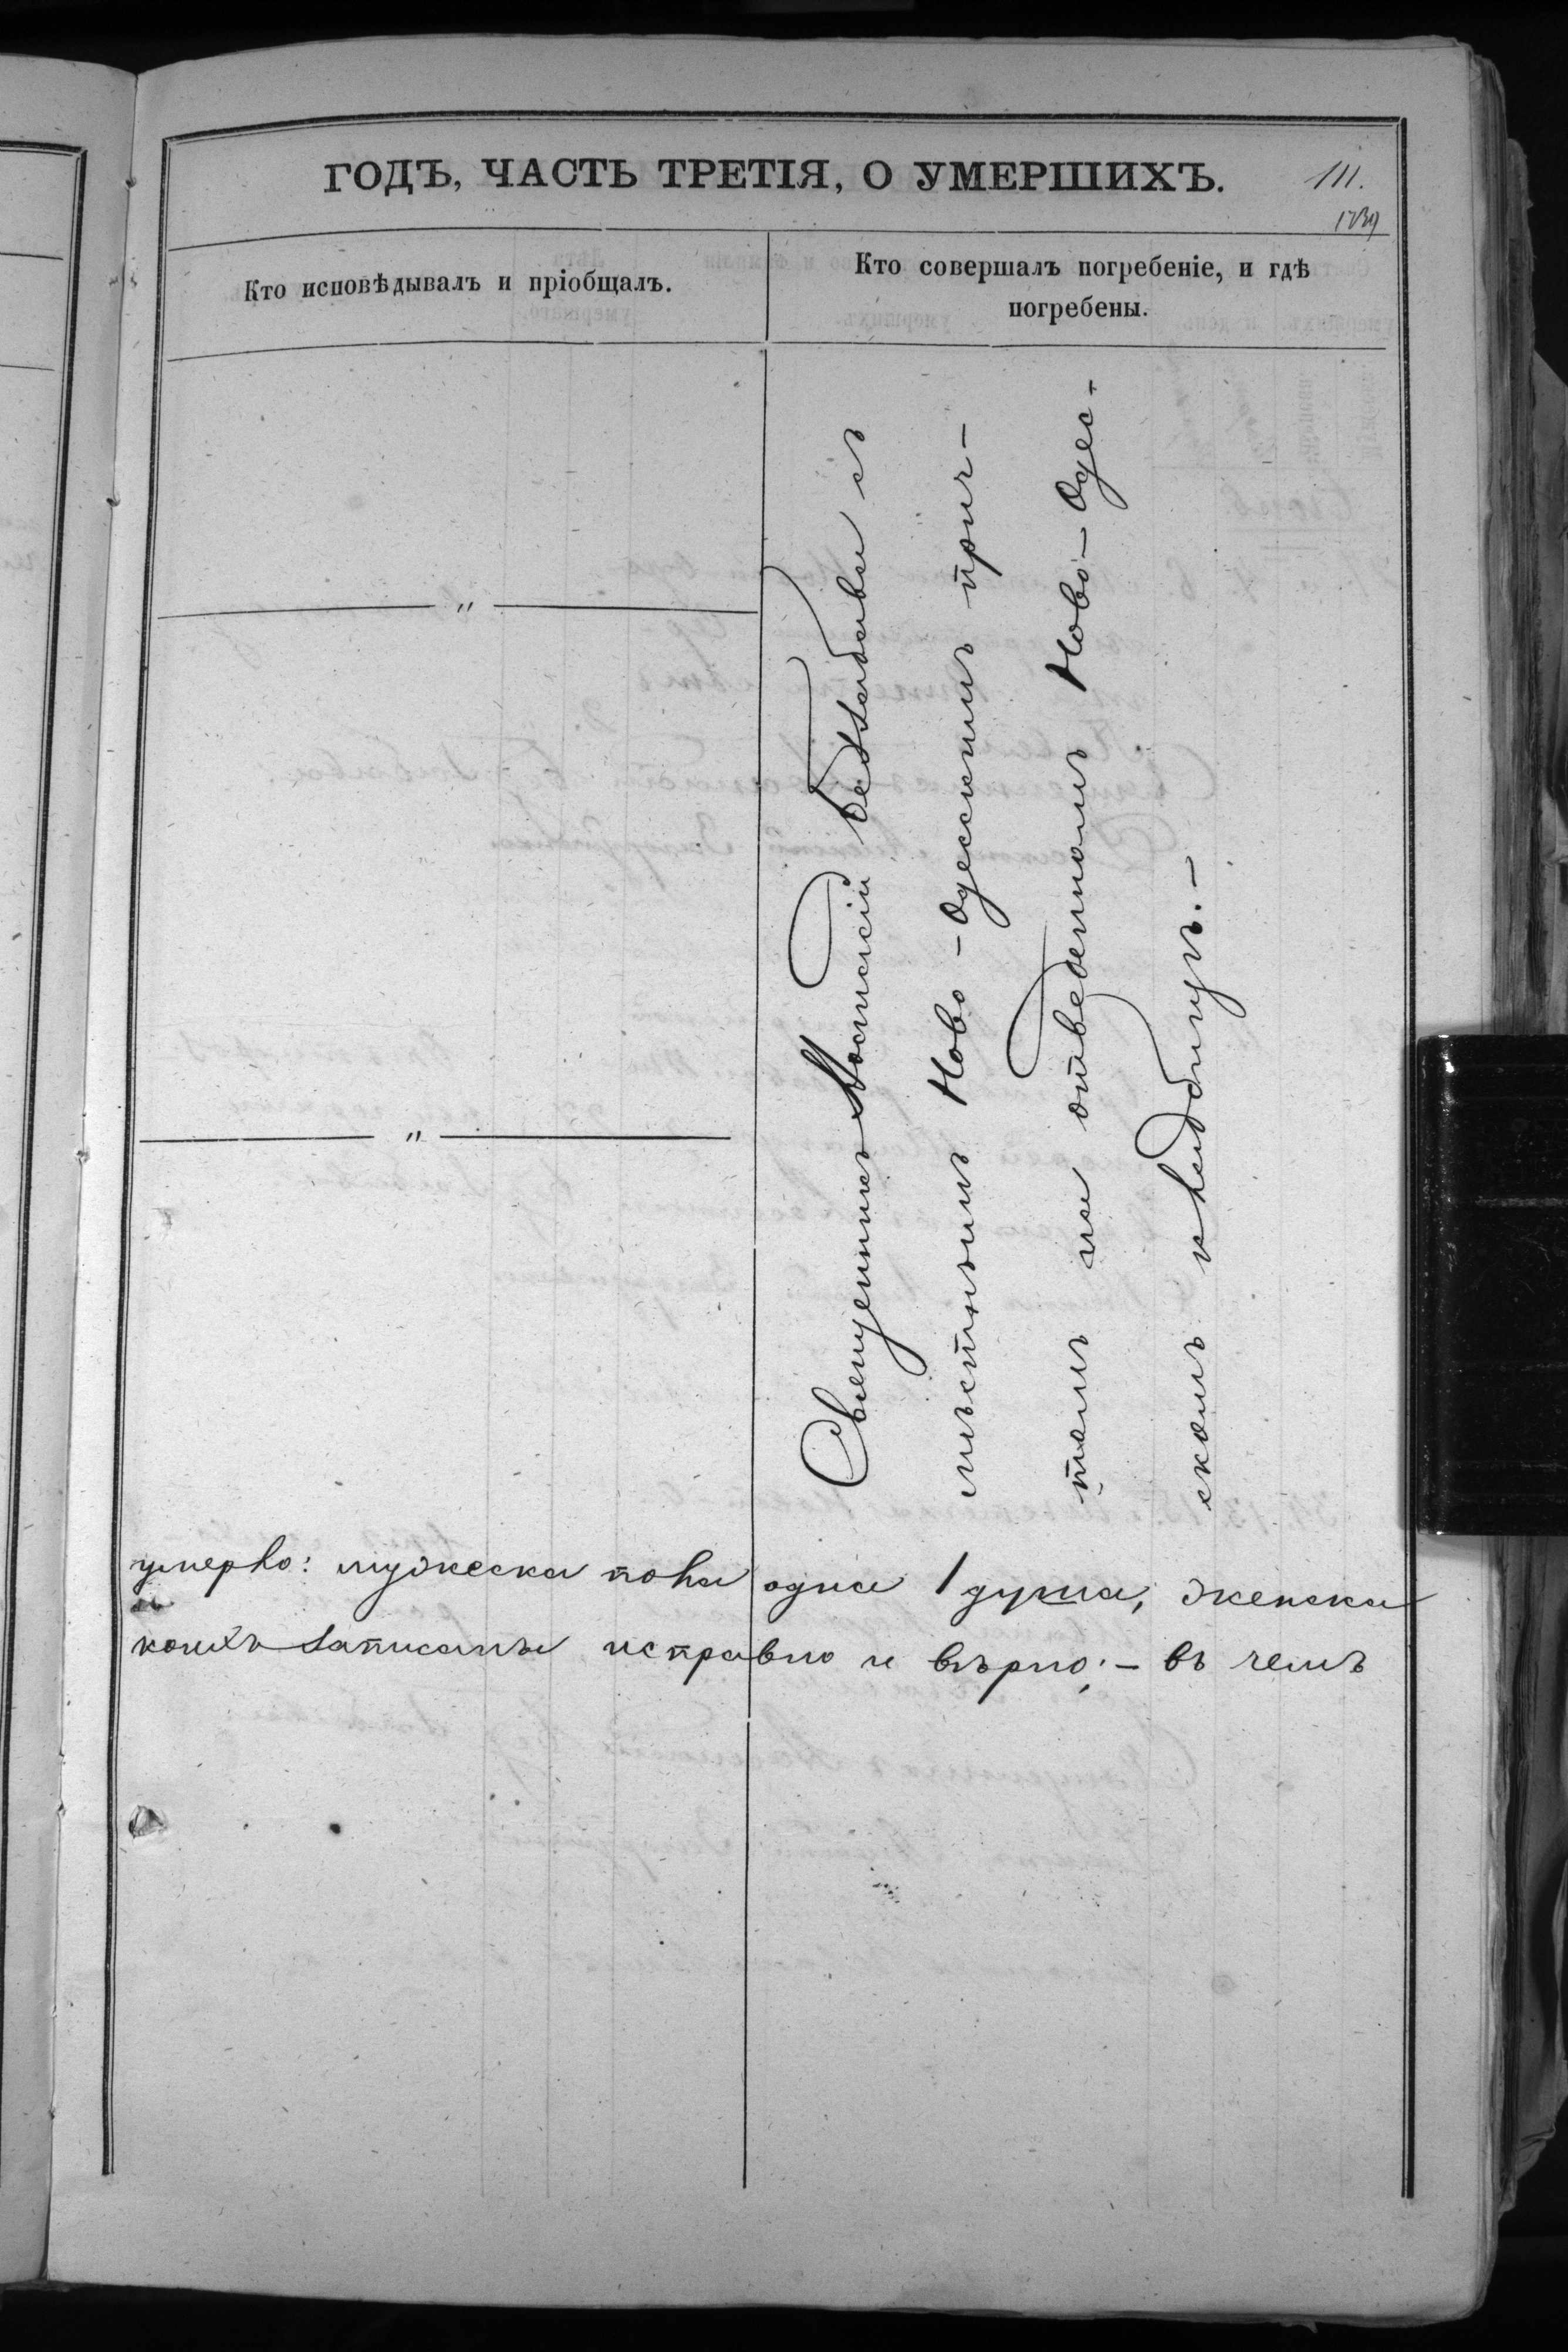 ГОДЪ, ЧАСТЬ ТРЕТІЯ, О УМЕРШИХЪ.
111.
Кто исповѣдывалъ и пріобщалъ.
Кто совершалъ погребеніе, и гдѣ
погребены.
"
"
Священникъ Іоанникій Беззабава съ
мѣстнымъ Ново-Одесскимъ прич-
томъ на отведенномъ Ново-Одес-
скомъ кладбищѣ.-
умерло: мужеска пола одна 1 душа, женска
коихъ записаны исправно и вѣрно; - въ чемъ